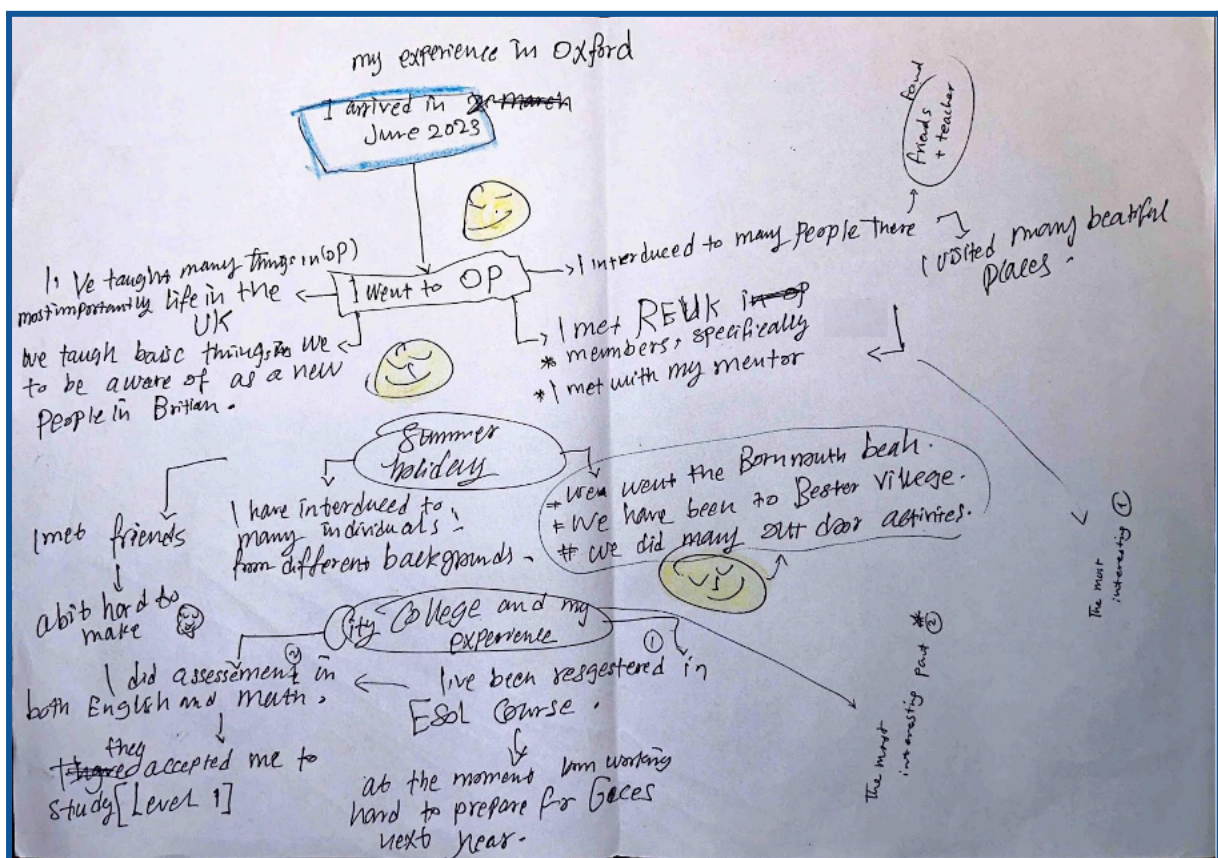 my experience in Oxford
I arrived in 2 march
June 2023
friends found
+ teacher
I, Ve taught many things in (OP)
most importantly life in the
UK
I went to OP
I interduced to many people there
I visited many beatiful
places.
we taugh basic things in we
to be aware of as a new
people in Britian.
I met REUK in OP
* members, specifically
* I met with my mentor
Summer
holidays
I met friends
a bit hard to
make
I have interduced to
many individuals
from different backgrounds.
* Wen went the Bornmouth beah.
* We have been to Bester Villege.
# we did many out door activites.
The most
interesting ①
City College and my
experience
①
I've been resgestered in
ESOL Course.
②
I did assessement in
both English and Math.
they
accepted me to
study [Level 1]
at the moment I'am working
hard to prepare for Gsces
next year.
The most
interesting part * ②